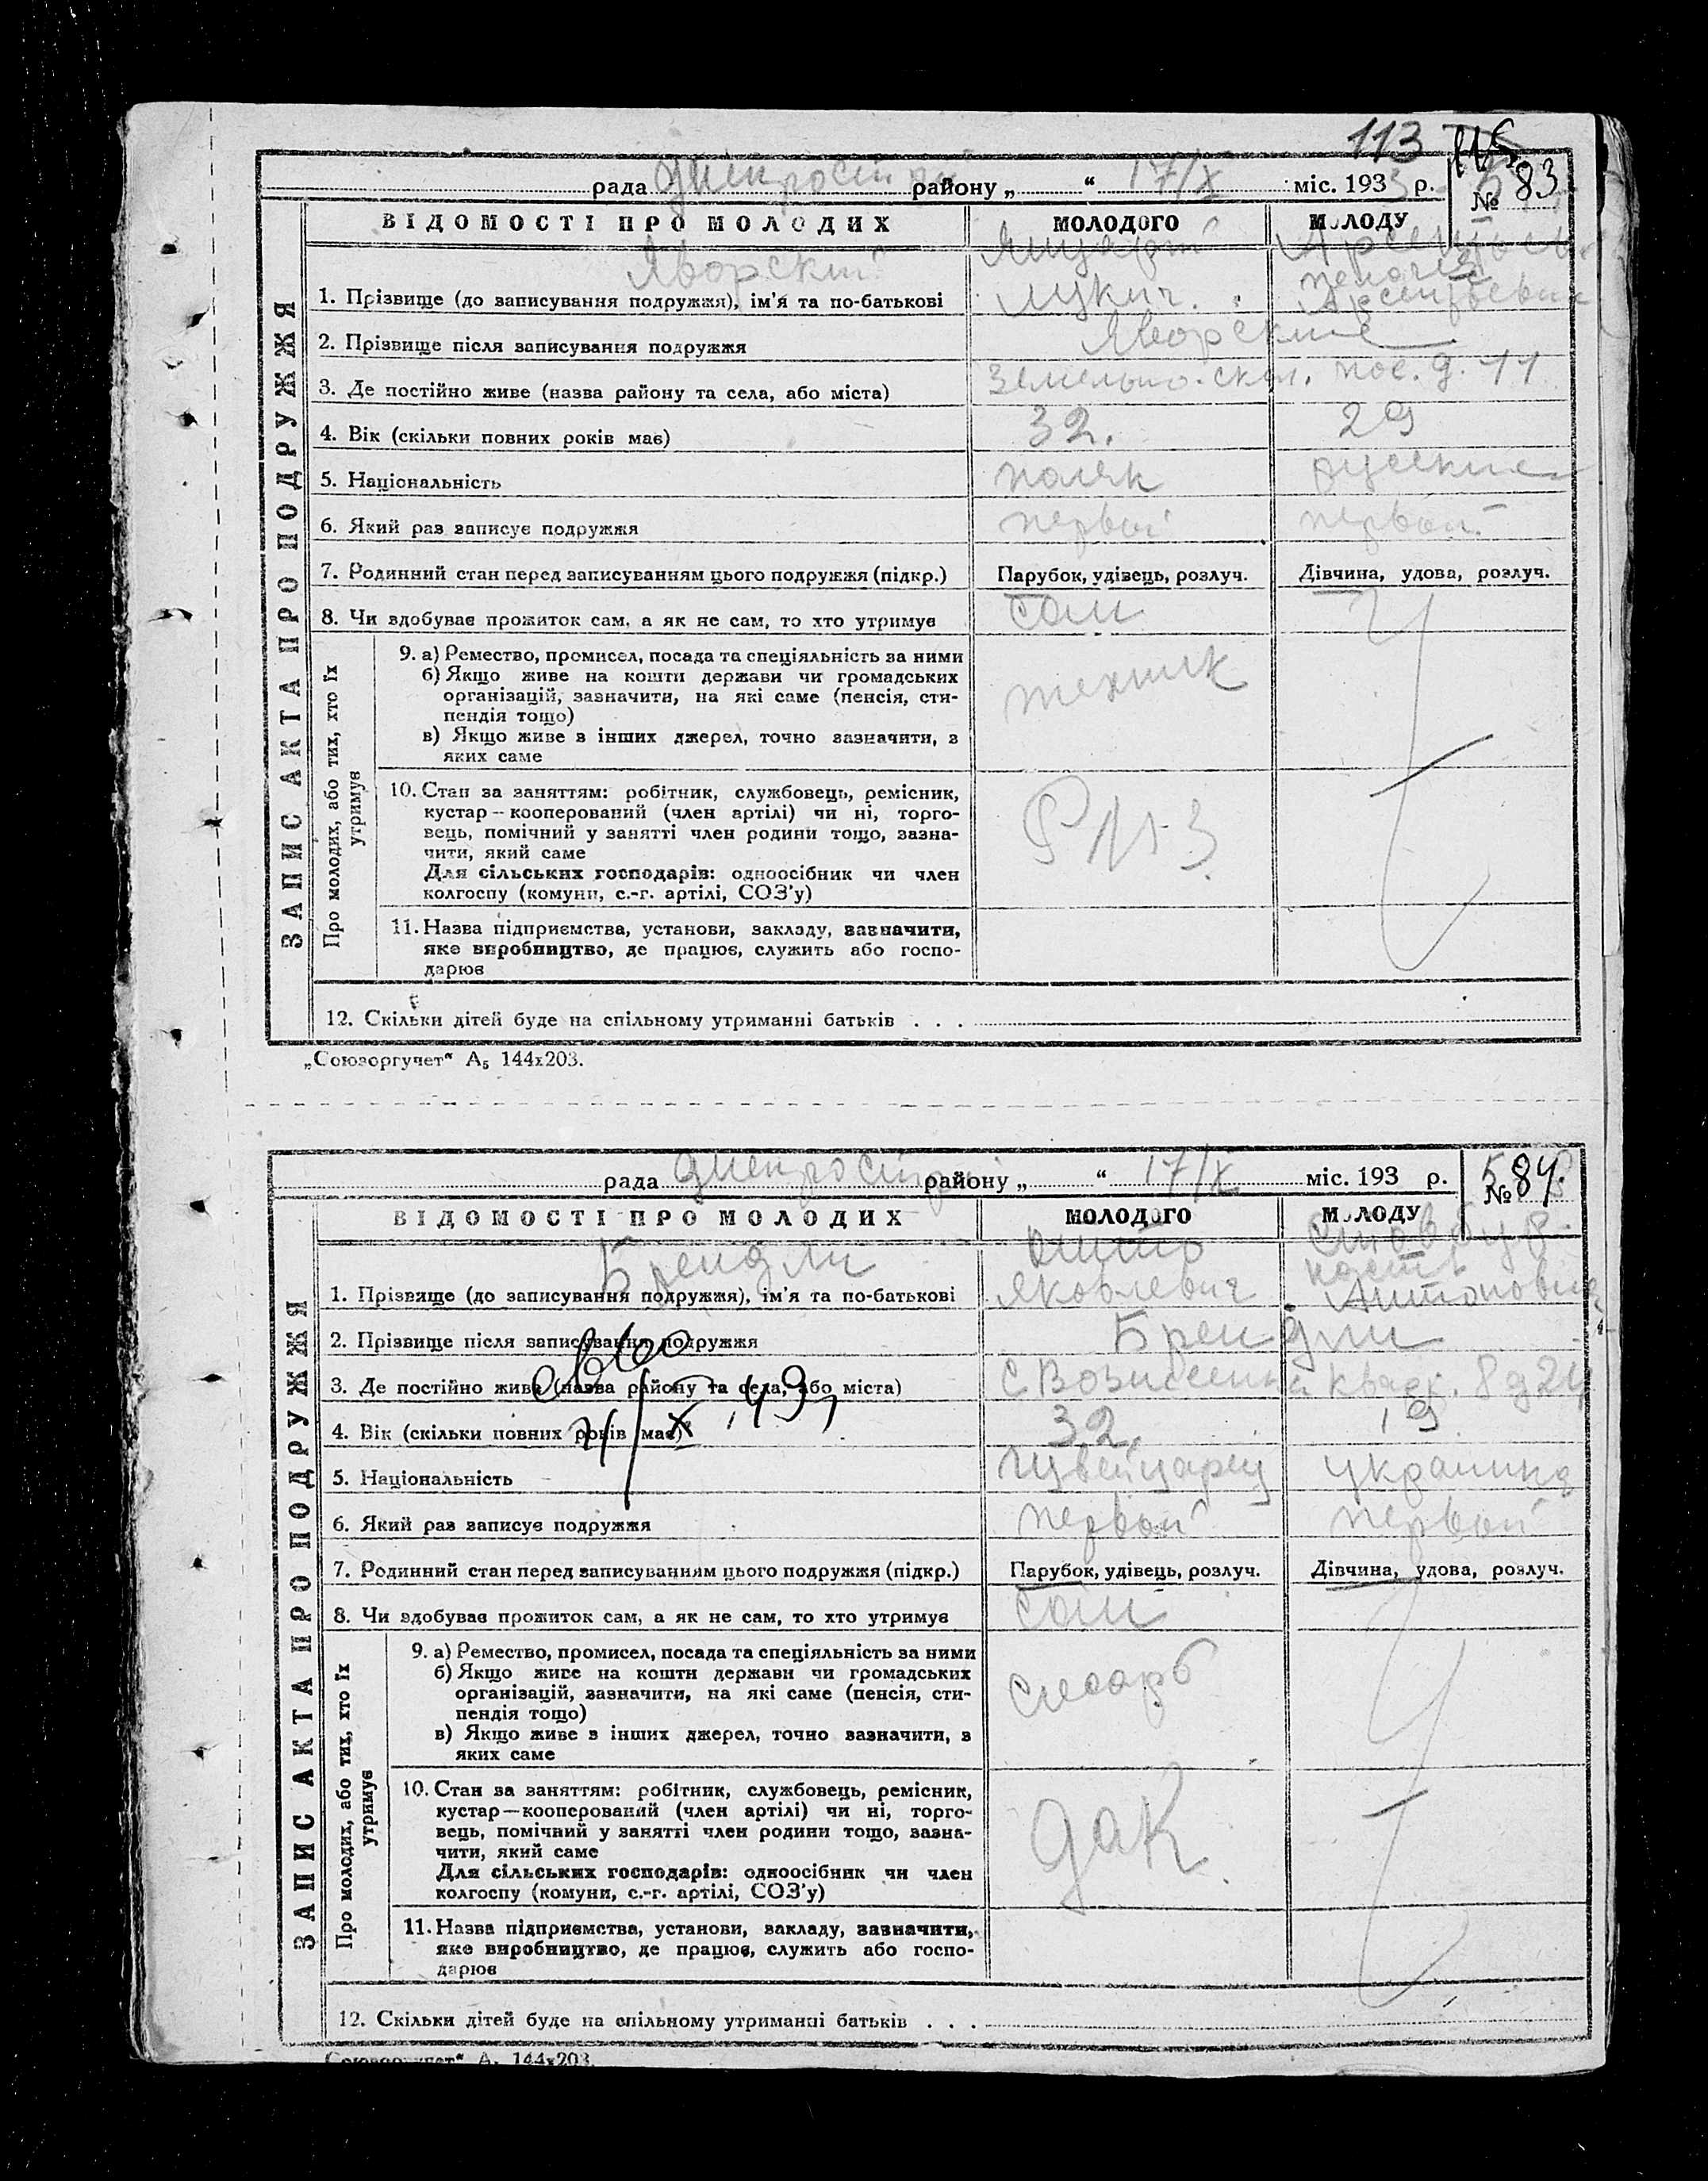 113
рада Днепрострой району „ “ 17/X міс. 1933 р. № 83
ВІДОМОСТІ ПРО МОЛОДИХ МОЛОДОГО МОЛОДУ
ЗАПИС АКТА ПРО ПОДРУЖЖЯ
Яворский
1. Прізвище (до записування подружжя), ім'я та по-батькові Лукич.
2. Прізвище після записування подружжя Яворские
3. Де постійно живе (назва району та села, або міста) пос. д. 11
4. Вік (скільки повних років має) 32. 29
5. Національність поляк русские
6. Який раз записує подружжя первой первой
7. Родинний стан перед записуванням цього подружжя (підкр.) Парубок, удівець, розлуч. Дівчина, удова, розлуч.
8. Чи здобуває прожиток сам, а як не сам, то хто утримує сам
Про молодих, або тих, хто їх утримує
9. а) Ремество, промисел, посада та спеціяльність за ними техник
б) Якщо живе на кошти держави чи громадських
організацій, зазначити, на які саме (пенсія, сти-
пендія тощо)
в) Якщо живе з інших джерел, точно зазначити, з
яких саме
10. Стан за заняттям: робітник, службовець, ремісник,
кустар — кооперований (член артілі) чи ні, торго-
вець, помічний у занятті член родини тощо, зазна-
чити, який саме
Для сільських господарів: одноосібник чи член
колгоспу (комуни, с.-г. артілі, СОЗ'у)
11. Назва підприємства, установи, закладу, зазначити,
яке виробництво, де працює, служить або госпо-
дарює
12. Скільки дітей буде на спільному утриманні батьків . . .
„Союзоргучет“ А₅ 144х203.
рада Днепрострой району „ “ 17/X міс. 193 р. № 84.
ВІДОМОСТІ ПРО МОЛОДИХ МОЛОДОГО МОЛОДУ
ЗАПИС АКТА ПРО ПОДРУЖЖЯ
Брендли
1. Прізвище (до записування подружжя), ім'я та по-батькові Яковлевич Антоновна
2. Прізвище після записування подружжя Брендли
3. Де постійно живе (назва району та села, або міста) с Вознесенка кварт. 8 д 24
4. Вік (скільки повних років має) 32. 19
5. Національність Швейцарец украинка
6. Який раз записує подружжя первой первой
7. Родинний стан перед записуванням цього подружжя (підкр.) Парубок, удівець, розлуч. Дівчина, удова, розлуч.
8. Чи здобуває прожиток сам, а як не сам, то хто утримує сам
Про молодих, або тих, хто їх утримує
9. а) Ремество, промисел, посада та спеціяльність за ними слесарь
б) Якщо живе на кошти держави чи громадських
організацій, зазначити, на які саме (пенсія, сти-
пендія тощо)
в) Якщо живе з інших джерел, точно зазначити, з
яких саме
10. Стан за заняттям: робітник, службовець, ремісник,
кустар — кооперований (член артілі) чи ні, торго-
вець, помічний у занятті член родини тощо, зазна-
чити, який саме
Для сільських господарів: одноосібник чи член
колгоспу (комуни, с.-г. артілі, СОЗ'у)
ДАК.
11. Назва підприємства, установи, закладу, зазначити,
яке виробництво, де працює, служить або госпо-
дарює
12. Скільки дітей буде на спільному утриманні батьків . . .
„Союзоргучет“ А₅ 144х203.